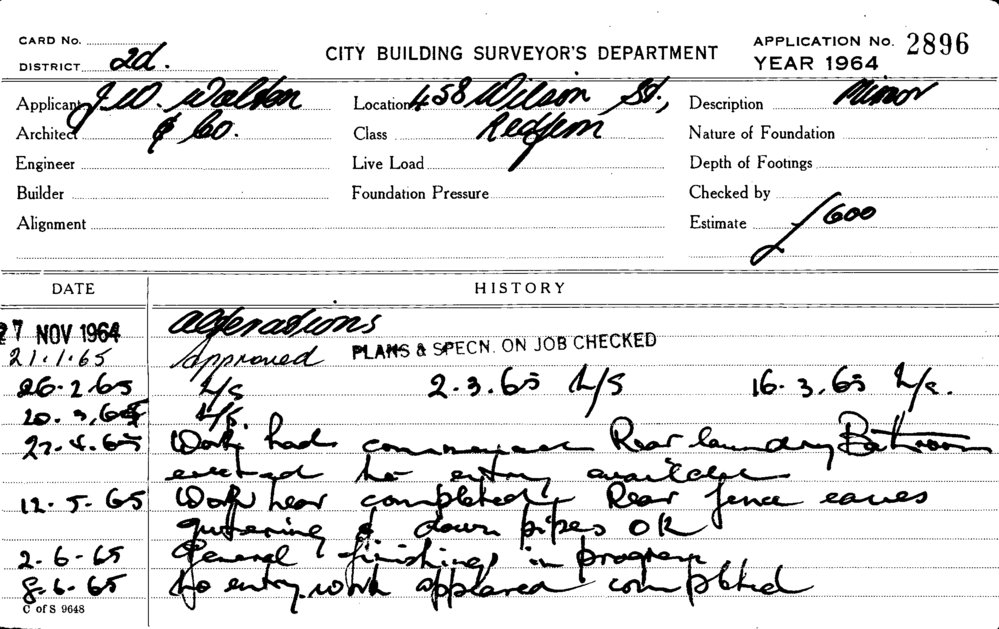 CARD No.
DISTRICT 2d.
CITY BUILDING SURVEYOR'S DEPARTMENT
APPLICATION No. 2896
YEAR 1964
Applicant J. W. Walton Location 458 Wilson St., Description Minor
Architect & Co. Class Redfern Nature of Foundation
Engineer Live Load Depth of Footings
Builder Foundation Pressure Checked by
Alignment Estimate £600
DATE HISTORY
27 NOV 1964 Alterations
21.1.65 Approved PLANS & SPECN. ON JOB CHECKED
26.2.65 L/S 2.3.65 L/S 16.3.65 L/S.
20.3.65 L/S.
27.4.65 Work had commenced Rear laundry Bathroom
erected no entry available
12.5.65 Work near completed Rear fence eaves
guttering & down pipes OK
2-6-65 General finishing in progress
8-6-65 No entry. work appeared completed
C of S 9648